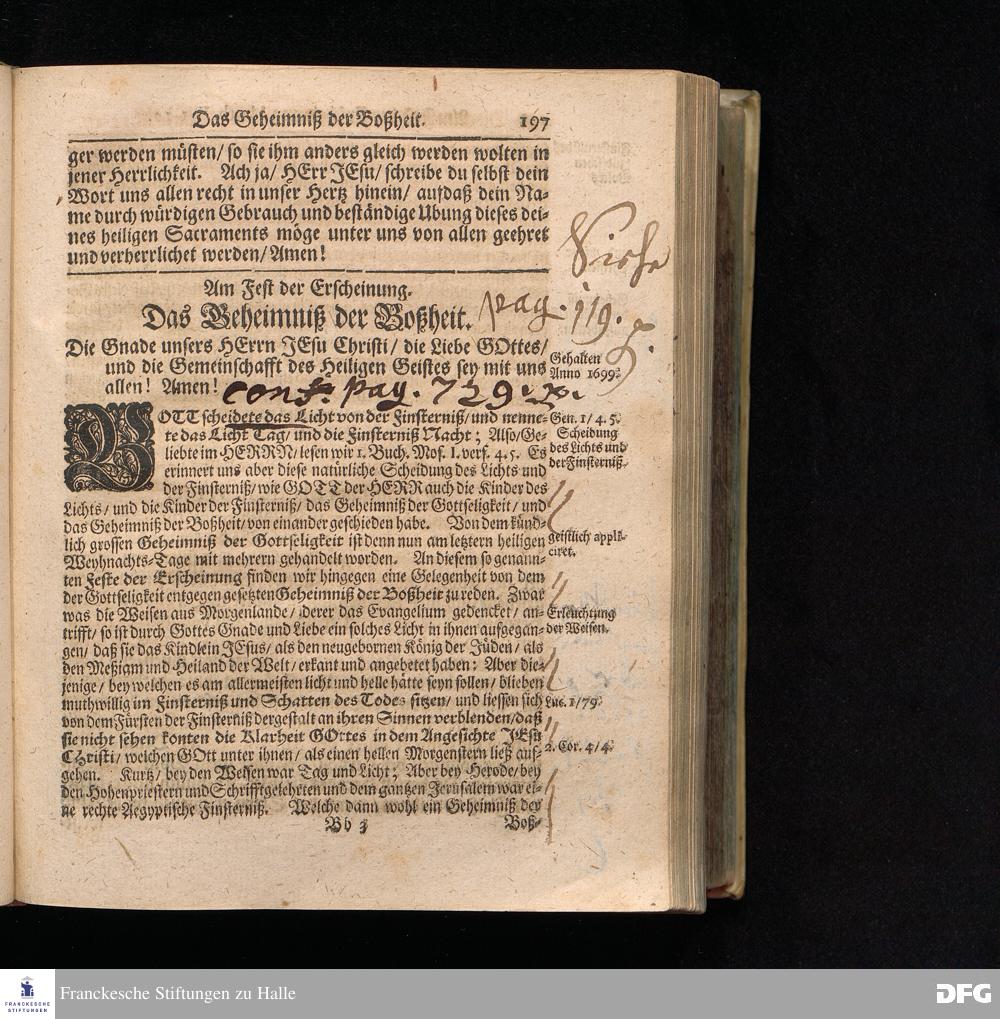 Das Geheimniß der Boßheit. 197
ger werden müsten/ so sie ihm anders gleich werden wolten in
jener Herrlichkeit. Ach ja/ HErr JEsu/ schreibe du selbst dein
Wort uns allen recht in unser Hertz hinein/ aufdaß dein Na-
me durch würdigen Gebrauch und beständige Ubung dieses dei-
nes heiligen Sacraments möge unter uns von allen geehret
und verherrlichet werden/ Amen!
Am Fest der Erscheinung.
Das Geheimniß der Boßheit.
Siehe
pag. 119.
Die Gnade unsers HErrn JEsu Christi/ die Liebe GOttes/
und die Gemeinschafft des Heiligen Geistes sey mit uns
allen! Amen!
conf. pag. 729.
Gehalten
Anno 1699.
GOTT scheidete das Licht von der Finsterniß/ und nenne-
te das Licht Tag/ und die Finsterniß Nacht; Also/ Ge-
liebte im HERRN/ lesen wir 1. Buch. Mos. I. vers. 4. 5. Es
erinnert uns aber diese natürliche Scheidung des Lichts und
der Finsterniß/ wie GOTT der HERR auch die Kinder des
Lichts/ und die Kinder der Finsterniß/ das Geheimniß der Gottseligkeit/ und
das Geheimniß der Boßheit/ von einander geschieden habe. Von dem künd-
lich grossen Geheimniß der Gottseligkeit ist denn nun am letztern heiligen
Weyhnachts-Tage mit mehrern gehandelt worden. An diesem so genann-
ten Feste der Erscheinung finden wir hingegen eine Gelegenheit von dem
der Gottseligkeit entgegen gesetzten Geheimniß der Boßheit zu reden. Zwar
was die Weisen aus Morgenlande/ derer das Evangelium gedencket/ an-
trifft/ so ist durch Gottes Gnade und Liebe ein solches Licht in ihnen aufgegan-
gen/ daß sie das Kindlein JEsus/ als den neugebornen König der Jüden/ als
den Meßiam und Heiland der Welt/ erkant und angebetet haben: Aber die-
jenige/ bey welchen es am allermeisten licht und helle hätte seyn sollen/ blieben
muthwillig im Finsterniß und Schatten des Todes sitzen/ und liessen sich
von dem Fürsten der Finsterniß dergestalt an ihren Sinnen verblenden/ daß
sie nicht sehen konten die Klarheit GOttes in dem Angesichte JEsu
Christi/ welchen GOtt unter ihnen/ als einen hellen Morgenstern ließ auf-
gehen. Kurtz/ bey den Weisen war Tag und Licht; Aber bey Herode/ bey
den Hohenpriestern und Schrifftgelehrten und dem gantzen Jerusalem war ei-
ne rechte Aegyptische Finsterniß. Welche dann wohl ein Geheimniß der
Bb 3 Boß-
Gen. 1/ 4. 5.
Scheidung
des Lichts und
der Finsterniß.
geistlich appli-
ciret.
Erleuchtung
der Weisen.
Luc. 1/79.
2. Cor. 4/4.
FRANCKESCHE
STIFTUNGEN
Franckesche Stiftungen zu Halle
DFG